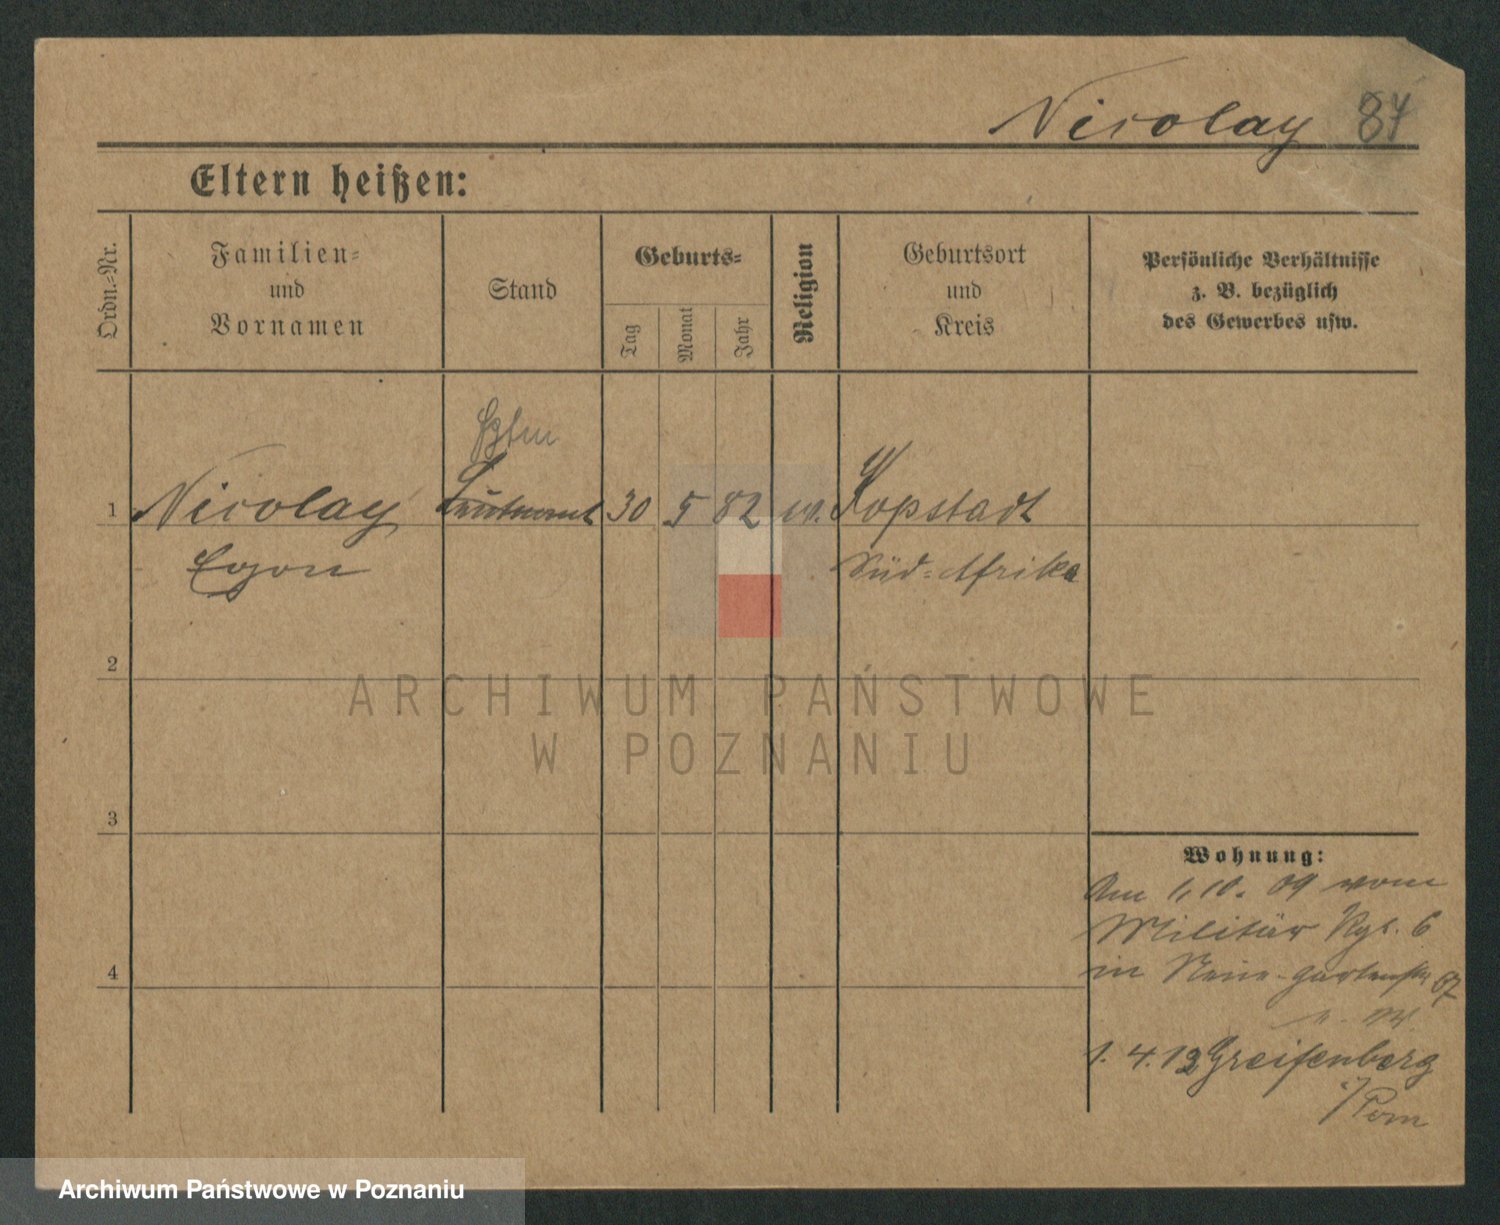 Nicolay 84
Eltern heißen:
Ordn.-Nr.
Familien-
und
Vornamen
Stand
Geburts-
Tag
Monat
Jahr
Religion
Geburtsort
und
Kreis
Persönliche Verhältnisse
z. B. bezüglich
des Gewerbes usw.
1 Nicolay Leutnant 30 5 82 ev. Kapstadt
Egon Süd-Afrika
2
ARCHIWUM PAŃSTWOWE
W POZNANIU
3
Wohnung:
Am 1.10.09 vom
Militär Rgt. 6
in Neue-Gartenstr
4
1.4.13 Greifenberg
i/Pom
Archiwum Państwowe w Poznaniu